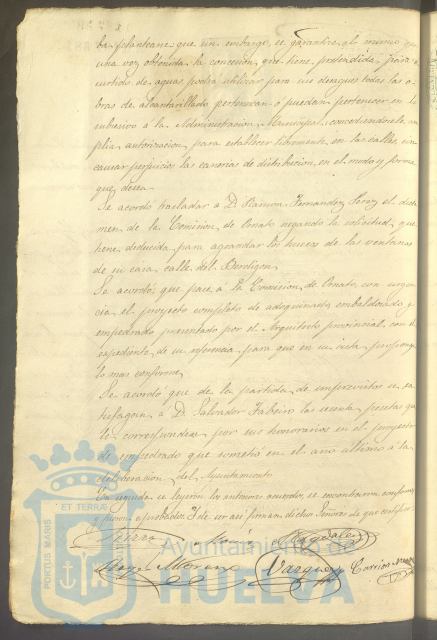 ba plantear, que sin embargo, se garantice al mismo que
una vez obtenida la concesion que tiene pretendida para
surtido de aguas podrá utilizar para sus desagues todas las o-
bras de alcantarillado pertenezcan ó puedan pertenecer en lo
subcesivo á la Administracion Municipal concediendosele am
plia autorizacion para establecer libremente en las calles sin
causar perjuicios las cañerias de distribucion, en el modo y forma
que desea.
Se acordo trasladar a D. Ramon Fernandez Perez el dicta
men de la Comision de Ornato negando la solicitud que
tiene deducida para agrandar los huecos de las ventanas
de su casa calle del Berdigon.
Se acordó que pase á la Comision de Ornato, con urgen
cia el proyecto completo de adoquinado, embaldosado y
empedrado presentado por el Arquitecto provincial, con el
espediente de su referencia para que en su vista proponga
lo mas conforme.
Se acordó que de la partida de imprevistos se sa
tisfagan á D. Salvador Fabeiro las pesetas que
le corresponden por sus honorarios en el proyecto
de empedrado que sometió en el año ultimo á la
deliberacion del Ayuntamiento.
En seguida se leyeron los anteriores acuerdos, se encontraron conformes
y fueron aprobados. Y de ser asi firman dichos Señores de que certifico.
Garcia Magdalena
Moreno Vazquez Carrion
PORTUS MARIS ET TERRÆ
Ayuntamiento de
HUELVA